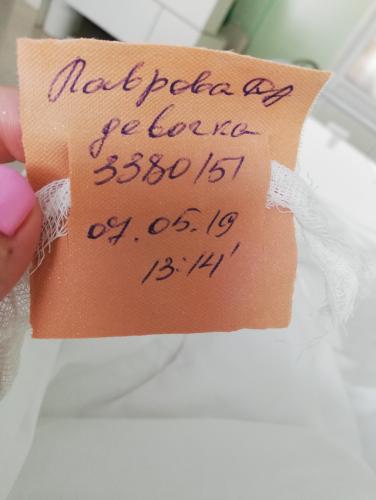 Лаврова
девочка
3380/51
07.05.19
13:14'